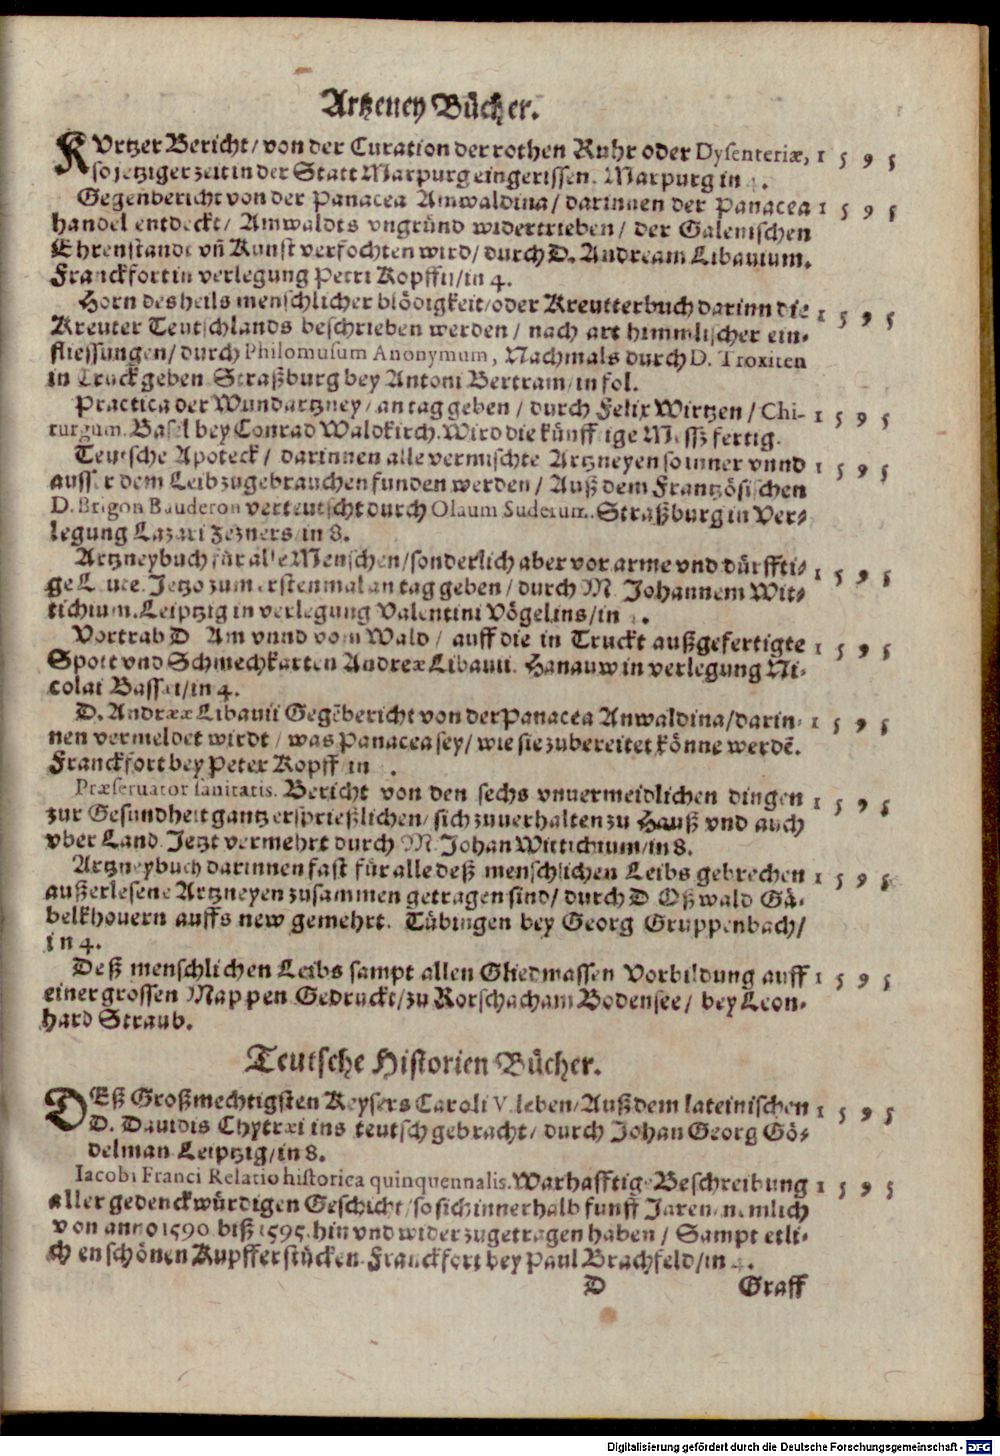 Artzeney Bücher.
KVrtzer Bericht/ von der Curation der rothen Ruhr oder Dysenteriæ, 1595
so jetziger zeit in der Statt Marpurg eingerissen. Marpurg in 4.
Gegenbericht von der Panacea Amwaldina/ darinnen der Panacea 1595
handel entdeckt/ Amwaldts vngründ widertrieben/ der Galenischen
Ehrenstande vñ Kunst verfochten wird/ durch D. Andream Libauium.
Franckfort in verlegung Petri Kopffij/in 4.
Horn des heils menschlicher blödigkeit/oder Kreutterbuch darinn die 1595
Kreuter Teutschlands beschrieben werden/ nach art himmlischer ein-
fliessungen/ durch Philomusum Anonymum, Nachmals durch D. Troxiten
in Truck geben. Straßburg bey Antoni Bertram/in fol.
Practica der Wundartzney/ an tag geben/ durch Felix Wirtzen/ Chi- 1595
rurgum. Basel bey Conrad Waldkirch. Wird die künfftige Messz fertig.
Teutsche Apoteck/ darinnen alle vermischte Artzneyen so inner vnnd 1595
ausser dem Leib zugebrauchen funden werden/ Auß dem Frantzösischen
D. Brigon Bauderon verteutscht durch Olaum Suderum. Straßburg in Ver-
legung Lazari Zezners/in 8.
Artzneybuch für alle Menschen/sonderlich aber vor arme vnd dürffti- 1595
ge Leute. Jetzo zum erstenmal an tag geben/ durch M. Johannem Wit-
tichium. Leiptzig in verlegung Valentini Vögelins/in
Vortrab D. Am vnnd vom Wald/ auff die in Truckt außgefertigte 1595
Spott vnd Schmechkarten Andreæ Libauii. Hanauw in verlegung Ni-
colai Bassæi/in 4.
D. Andreæ Libauii Gegēbericht von der Panacea Anwaldina/darin- 1595
nen vermeldet wirdt/ was Panacea sey/ wie sie zubereitet könne werdē.
Franckfort bey Peter Kopff in .
Præseruator sanitatis. Bericht von den sechs vnuermeidlichen dingen 1595
zur Gesundheit gantz ersprießlichen/ sich zuuerhalten zu Hauß vnd auch
vber Land. Jetzt vermehrt durch M. Johan Wittichium/in 8.
Artzneybuch darinnen fast für alle deß menschlichen Leibs gebrechen 1595
außerlesene Artzneyen zusammen getragen sind/ durch D. Oßwald Gä-
belkhouern auffs new gemehrt. Tübingen bey Georg Gruppenbach/
in 4.
Deß menschlichen Leibs sampt allen Gliedmassen Vorbildung auff 1595
einer grossen Mappen Gedruckt/zu Rorschach am Bodensee/ bey Leon-
hard Straub.
Teutsche Historien Bücher.
DEß Großmechtigsten Keysers Caroli V. leben/Auß dem lateinischen 1595
D. Dauidis Chytræi ins teutsch gebracht/ durch Johan Georg Gö-
delman Leiptzig/in 8.
Iacobi Franci Relatio historica quinquennalis. Warhafftige Beschreibung 1595
aller gedenckwürdigen Geschicht/so sich innerhalb funff Jaren/nemlich
von anno 1590. biß 1595. hin vnd wider zugetragen haben/ Sampt etli-
chen schönen Kupfferstücken. Franckfort bey Paul Brachfeld/in 4.
D Graff
Digitalisierung gefördert durch die Deutsche Forschungsgemeinschaft - DFG